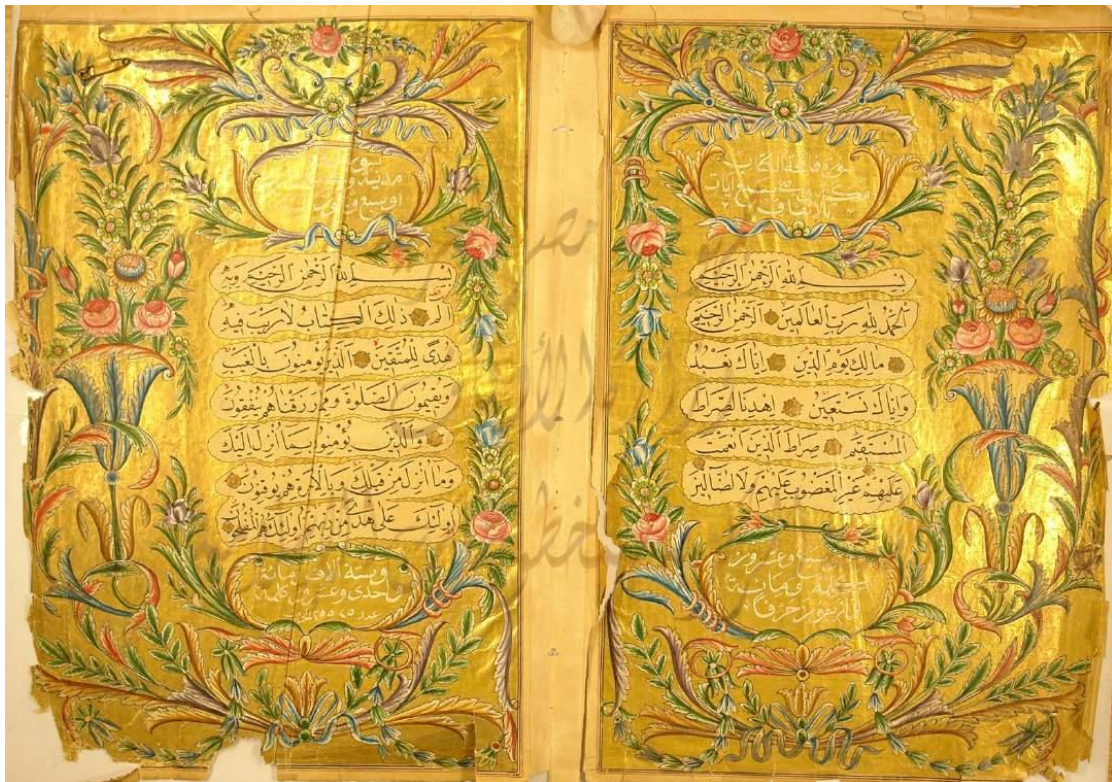 سورة فاتحة الكتاب
سبع آيات
بسم الله الرحمن الرحيم
الحمد لله رب العالمين الرحمن الرحيم
مالك يوم الدين اياك نعبد
واياك نستعين اهدنا الصراط
المستقيم صراط الذين انعمت
عليهم غير المغضوب عليهم ولا الضالين
وعشرون
كلمة ومائة
حرف
بسم الله الرحمن الرحيم وبه
الم ذلك الكتاب لا ريب فيه
هدى للمتقين الذين يؤمنون بالغيب
ويقيمون الصلوة ومما رزقناهم ينفقون
والذين يؤمنون بما انزل اليك
وما انزل من قبلك وبالاخرة هم يوقنون
اولئك على هدى من ربهم واولئك هم المفلحون
وستة الاف ومائة
واحدى وعشرون كلمة
مصر